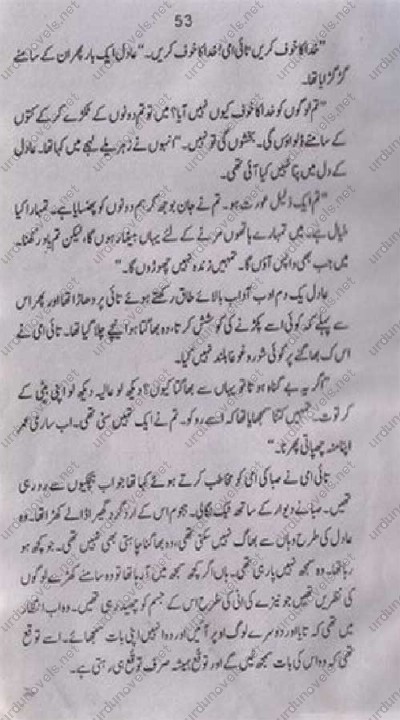 53
"خدا کا خوف کریں تائی امی! خدا کا خوف کریں۔" عادل ایک بار پھر ان کے سامنے
گڑگڑایا تھا۔
"تم لوگوں کو خدا کا خوف کیوں نہیں آیا؟ میں تو تم دونوں کے ٹکڑے کر کے کتوں
کے سامنے ڈلواؤں گی۔ بخشوں گی تو نہیں۔" انہوں نے زہریلے لہجے میں کہا تھا۔ عادل
کے دل میں پتا نہیں کیا آئی تھی۔
"تم ایک ذلیل عورت ہو۔ تم نے جان بوجھ کر ہم دونوں کو پھنسایا ہے۔ تمہارا کیا
خیال ہے میں تمہارے ہاتھوں مرنے کے لئے یہاں بیٹھا رہوں گا، لیکن تم یاد رکھنا۔
میں جب بھی واپس آؤں گا۔ تمہیں زندہ نہیں چھوڑوں گا۔"
عادل یک دم ادب آداب بالائے طاق رکھتے ہوئے تائی پر دھاڑا تھا اور پھر اس
سے پہلے کہ کوئی اسے پکڑنے کی کوشش کرتا، وہ بھاگتا ہوا نیچے چلا گیا تھا۔ تائی امی نے
اس کے بھاگنے پر کوئی شور و غوغا بلند نہیں کیا۔
"اگر یہ بے گناہ ہوتا تو یہاں سے بھاگتا کیوں؟ دیکھ لو عالیہ دیکھ لو اپنی بیٹی کے
کرتوت۔ تمہیں کتنا سمجھایا تھا کہ اسے روکو۔ تم نے ایک نہیں سنی تھی۔ اب ساری عمر
اپنا منہ چھپاتی پھرنا۔"
تائی امی نے صبا کی امی کو مخاطب کرتے ہوئے کہا تھا جو اب ہچکیوں سے رو رہی
تھیں۔ صبا نے دیوار کے ساتھ ٹیک لگالی۔ ہجوم اس کے اردگرد گھیرا ڈالے کھڑا تھا۔ وہ
عادل کی طرح وہاں سے بھاگ نہیں سکتی تھی، وہ بھاگنا چاہتی بھی نہیں تھی۔ جو کچھ ہو
رہا تھا۔ وہ سمجھ نہیں پا رہی تھی۔ ہاں اگر کچھ سمجھ میں آ رہا تھا تو وہ سامنے کھڑے لوگوں
کی نظریں تھیں جو نیزے کی انی کی طرح اس کے جسم کو چھید رہی تھیں۔ وہ اب انتظار
میں تھی کہ تایا اور دوسرے لوگ اوپر آئیں اور وہ انہیں اپنی بات سمجھائے۔ اسے توقع
تھی کہ وہ اس کی بات سمجھ لیں گے اور توقع ہمیشہ صرف توقع ہی رہتی ہے۔
urdunovels.net